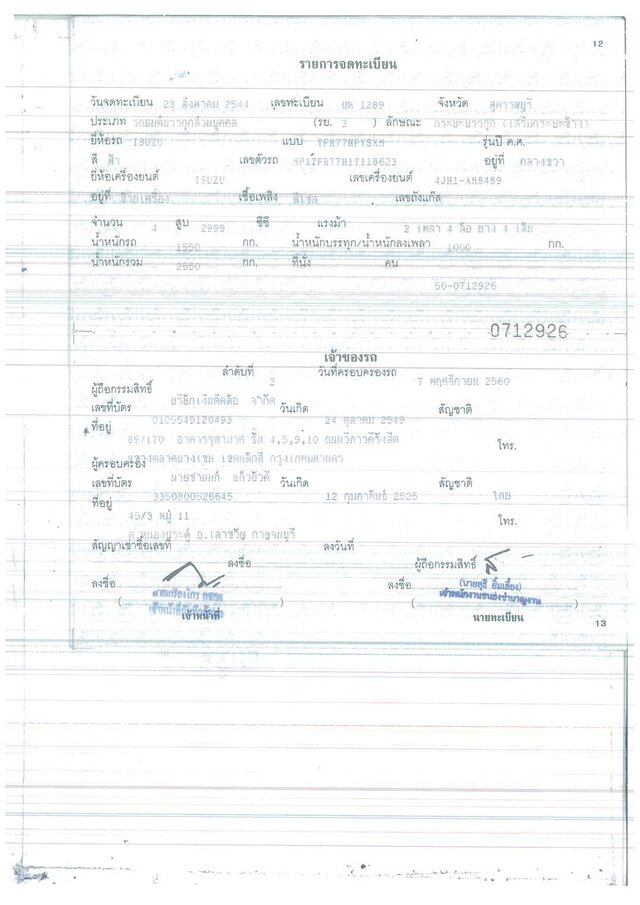 12
รายการจดทะเบียน
วันจดทะเบียน 23 สิงหาคม 2544 เลขทะเบียน บท 1289 จังหวัด สุพรรณบุรี
ประเภท รถยนต์บรรทุกส่วนบุคคล (รย. 3 ) ลักษณะ กระบะบรรทุก (เสริมกระบะข้าง)
ยี่ห้อรถ ISUZU แบบ TFR77HPYSXM รุ่นปี ค.ศ.
สี ฟ้า เลขตัวรถ MP1TFR77H1T118623 อยู่ที่ กลางขวา
ยี่ห้อเครื่องยนต์ ISUZU เลขเครื่องยนต์ 4JH1-AM8489
อยู่ที่ ซ้ายเครื่อง เชื้อเพลิง ดีเซล เลขถังแก๊ส
จำนวน 4 สูบ 2999 ซีซี แรงม้า 2 เพลา 4 ล้อ ยาง 4 เส้น
น้ำหนักรถ 1550 กก. น้ำหนักบรรทุก/น้ำหนักลงเพลา 1000 กก.
น้ำหนักรวม 2550 กก. ที่นั่ง คน
50-0712926
0712926
เจ้าของรถ
ลำดับที่ 2 วันที่ครอบครองรถ 7 พฤศจิกายน 2560
ผู้ถือกรรมสิทธิ์ บริษัทเงินติดล้อ จำกัด
เลขที่บัตร 0105549126493 วันเกิด 24 ตุลาคม 2549 สัญชาติ
ที่อยู่ 89/170 อาคารจุฑามาศ ชั้น 4,5,9,10 ถนนวิภาวดีรังสิต โทร.
แขวงตลาดบางเขน เขตหลักสี่ กรุงเทพมหานคร
ผู้ครอบครอง นายชานนท์
เลขที่บัตร 3350800526645 วันเกิด 12 กุมภาพันธ์ 2525 สัญชาติ ไทย
ที่อยู่ 45/3 หมู่ 11 โทร.
ต.หนองประดู่ อ.เลาขวัญ กาญจนบุรี
สัญญาเช่าซื้อเลขที่ ลงวันที่
ลงชื่อ ผู้ถือกรรมสิทธิ์
ลงชื่อ ลงชื่อ
(นายสุธี ยิ้มเฮี้ยง)
เจ้าพนักงานขนส่งชำนาญงาน
เจ้าหน้าที่ นายทะเบียน
13